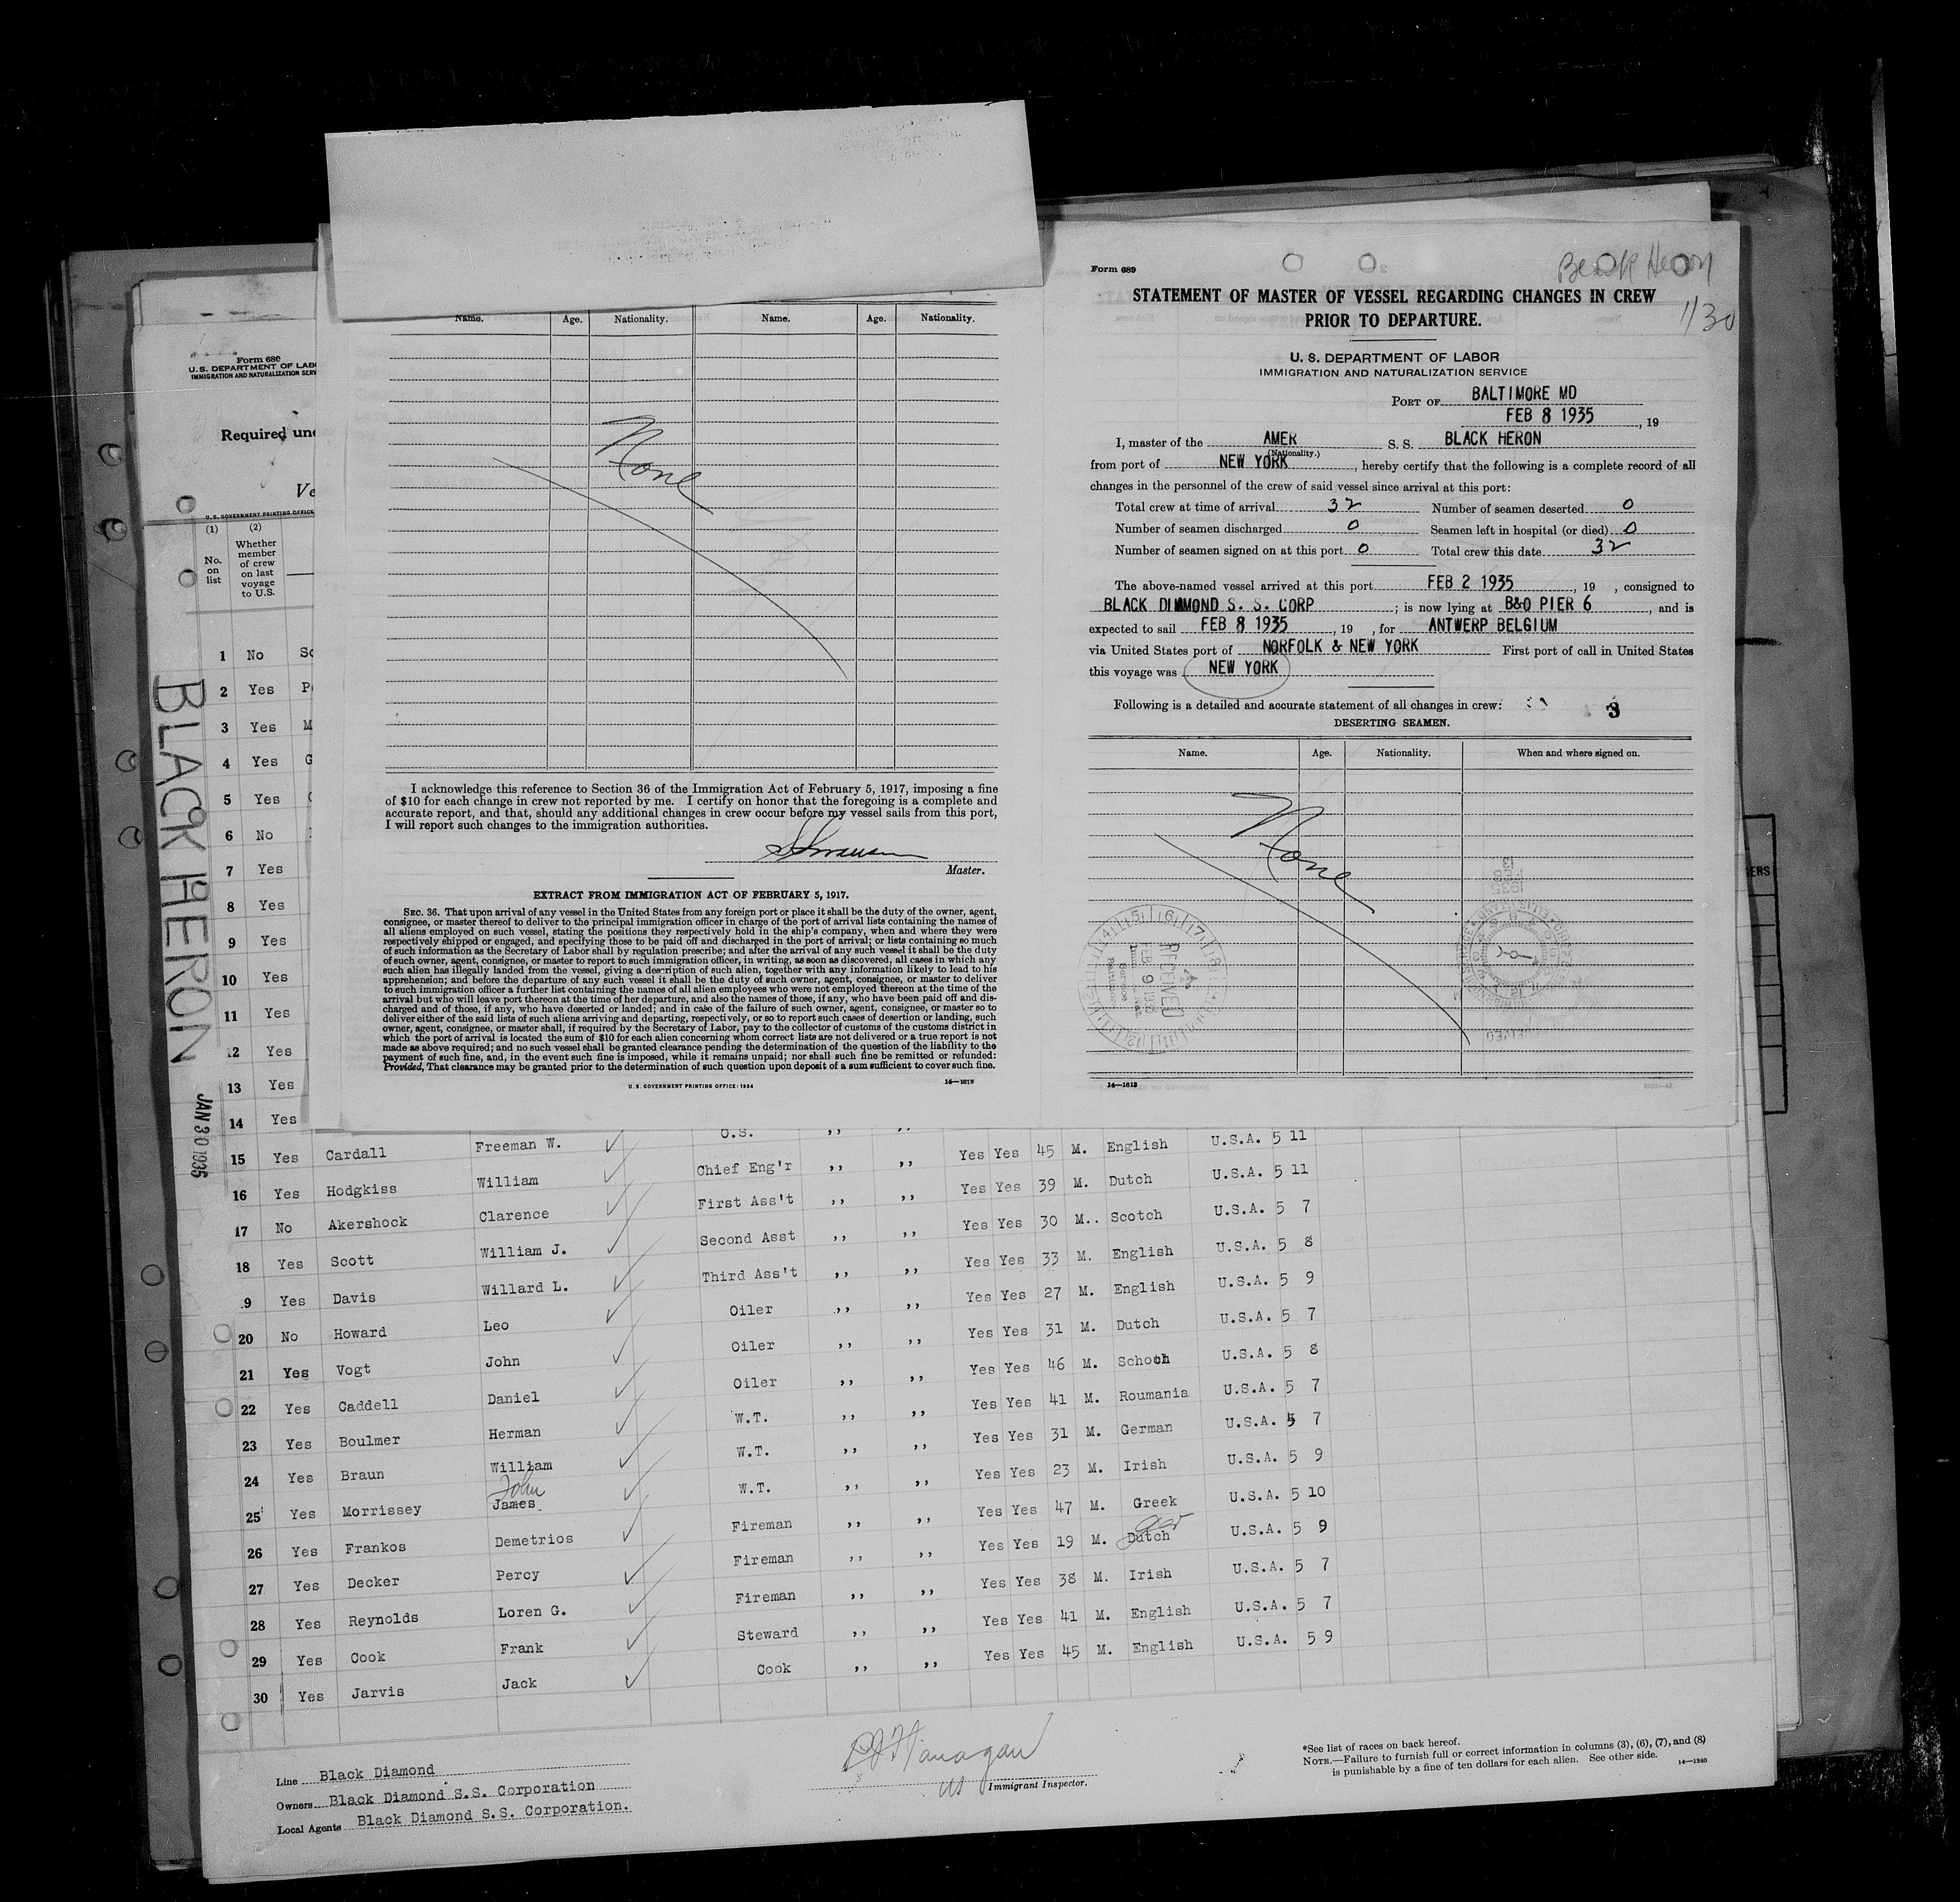 Form 689
Black Heron
1/30
STATEMENT OF MASTER OF VESSEL REGARDING CHANGES IN CREW
PRIOR TO DEPARTURE.
U. S. DEPARTMENT OF LABOR
IMMIGRATION AND NATURALIZATION SERVICE
PORT OF BALTIMORE MD
FEB 8 1935, 19
I, master of the AMER S. S. BLACK HERON
(Nationality.)
from port of NEW YORK, hereby certify that the following is a complete record of all
changes in the personnel of the crew of said vessel since arrival at this port:
Total crew at time of arrival 32 Number of seamen deserted 0
Number of seamen discharged 0 Seamen left in hospital (or died) 0
Number of seamen signed on at this port 0 Total crew this date 32
The above-named vessel arrived at this port FEB 2 1935, 19 , consigned to
BLACK DIAMOND S. S. CORP ; is now lying at B&O PIER 6, and is
expected to sail FEB 8 1935, 19 , for ANTWERP BELGIUM
via United States port of NORFOLK & NEW YORK First port of call in United States
this voyage was NEW YORK
Following is a detailed and accurate statement of all changes in crew: 3
DESERTING SEAMEN.
Name. Age. Nationality. When and where signed on.
None
RECEIVED
FEB 9 1935
Baltimore
14—1613
Name. Age. Nationality. Name. Age. Nationality.
None
I acknowledge this reference to Section 36 of the Immigration Act of February 5, 1917, imposing a fine
of $10 for each change in crew not reported by me. I certify on honor that the foregoing is a complete and
accurate report, and that, should any additional changes in crew occur before my vessel sails from this port,
I will report such changes to the immigration authorities.
Master.
EXTRACT FROM IMMIGRATION ACT OF FEBRUARY 5, 1917.
SEC. 36. That upon arrival of any vessel in the United States from any foreign port or place it shall be the duty of the owner, agent,
consignee, or master thereof to deliver to the principal immigration officer in charge of the port of arrival lists containing the names of
all aliens employed on such vessel, stating the positions they respectively hold in the ship's company, when and where they were
respectively shipped or engaged, and specifying those to be paid off and discharged in the port of arrival; or lists containing so much
of such information as the Secretary of Labor shall by regulation prescribe; and after the arrival of any such vessel it shall be the duty
of such owner, agent, consignee, or master to report to such immigration officer, in writing, as soon as discovered, all cases in which any
such alien has illegally landed from the vessel, giving a description of such alien, together with any information likely to lead to his
apprehension; and before the departure of any such vessel it shall be the duty of such owner, agent, consignee, or master to deliver
to such immigration officer a further list containing the names of all alien employees who were not employed thereon at the time of the
arrival but who will leave port thereon at the time of her departure, and also the names of those, if any, who have been paid off and dis-
charged and of those, if any, who have deserted or landed; and in case of the failure of such owner, agent, consignee, or master so to
deliver either of the said lists of such aliens arriving and departing, respectively, or so to report such cases of desertion or landing, such
owner, agent, consignee, or master shall, if required by the Secretary of Labor, pay to the collector of customs of the customs district in
which the port of arrival is located the sum of $10 for each alien concerning whom correct lists are not delivered or a true report is not
made as above required; and no such vessel shall be granted clearance pending the determination of the question of the liability to the
payment of such fine, and, in the event such fine is imposed, while it remains unpaid; nor shall such fine be remitted or refunded:
Provided, That clearance may be granted prior to the determination of such question upon deposit of a sum sufficient to cover such fine.
U. S. GOVERNMENT PRINTING OFFICE: 1934 14—1613
Form 680
U. S. DEPARTMENT OF LAB
IMMIGRATION AND NATURALIZATION SERV
Required und
Ve
U. S. GOVERNMENT PRINTING OFFICE
(1) (2)
No. on list
Whether member of crew on last voyage to U.S.
BLACK HERON
JAN 30 1935
1 No Sc
2 Yes P
3 Yes M
4 Yes G
5 Yes
6 No
7 Yes
8 Yes
9 Yes
10 Yes
11 Yes
12 Yes
13 Yes
14 Yes O.S. ,, ,,
15 Yes Cardall Freeman W. Chief Eng'r ,, ,, Yes Yes 45 M. English U.S.A. 5 11
16 Yes Hodgkiss William First Ass't ,, ,, Yes Yes 39 M. Dutch U.S.A. 5 11
17 No Akershock Clarence Second Asst ,, ,, Yes Yes 30 M.. Scotch U.S.A. 5 7
18 Yes Scott William J. Third Ass't ,, ,, Yes Yes 33 M. English U.S.A. 5 8
19 Yes Davis Willard L. Oiler ,, ,, Yes Yes 27 M. English U.S.A. 5 9
20 No Howard Leo Oiler ,, ,, Yes Yes 31 M. Dutch U.S.A. 5 7
21 Yes Vogt John Oiler ,, ,, Yes Yes 46 M. Schoth U.S.A. 5 8
22 Yes Caddell Daniel W.T. ,, ,, Yes Yes 41 M. Roumania U.S.A. 5 7
23 Yes Boulmer Herman W.T. ,, ,, Yes Yes 31 M. German U.S.A. 5 7
24 Yes Braun William W.T. ,, ,, Yes Yes 23 M. Irish U.S.A. 5 9
25 Yes Morrissey John James Fireman ,, ,, Yes Yes 47 M. Greek U.S.A. 5 10
26 Yes Frankos Demetrios Fireman ,, ,, Yes Yes 19 M. Dutch Ger U.S.A. 5 9
27 Yes Decker Percy Fireman ,, ,, Yes Yes 38 M. Irish U.S.A. 5 7
28 Yes Reynolds Loren G. Steward ,, ,, Yes Yes 41 M. English U.S.A. 5 7
29 Yes Cook Frank Cook ,, ,, Yes Yes 45 M. English U.S.A. 5 9
30 Yes Jarvis Jack
Line Black Diamond
Owners Black Diamond S.S. Corporation
Local Agents Black Diamond S.S. Corporation.
Immigrant Inspector.
*See list of races on back hereof.
NOTE.—Failure to furnish full or correct information in columns (3), (6), (7), and (8)
is punishable by a fine of ten dollars for each alien. See other side. 14—1240
ERS